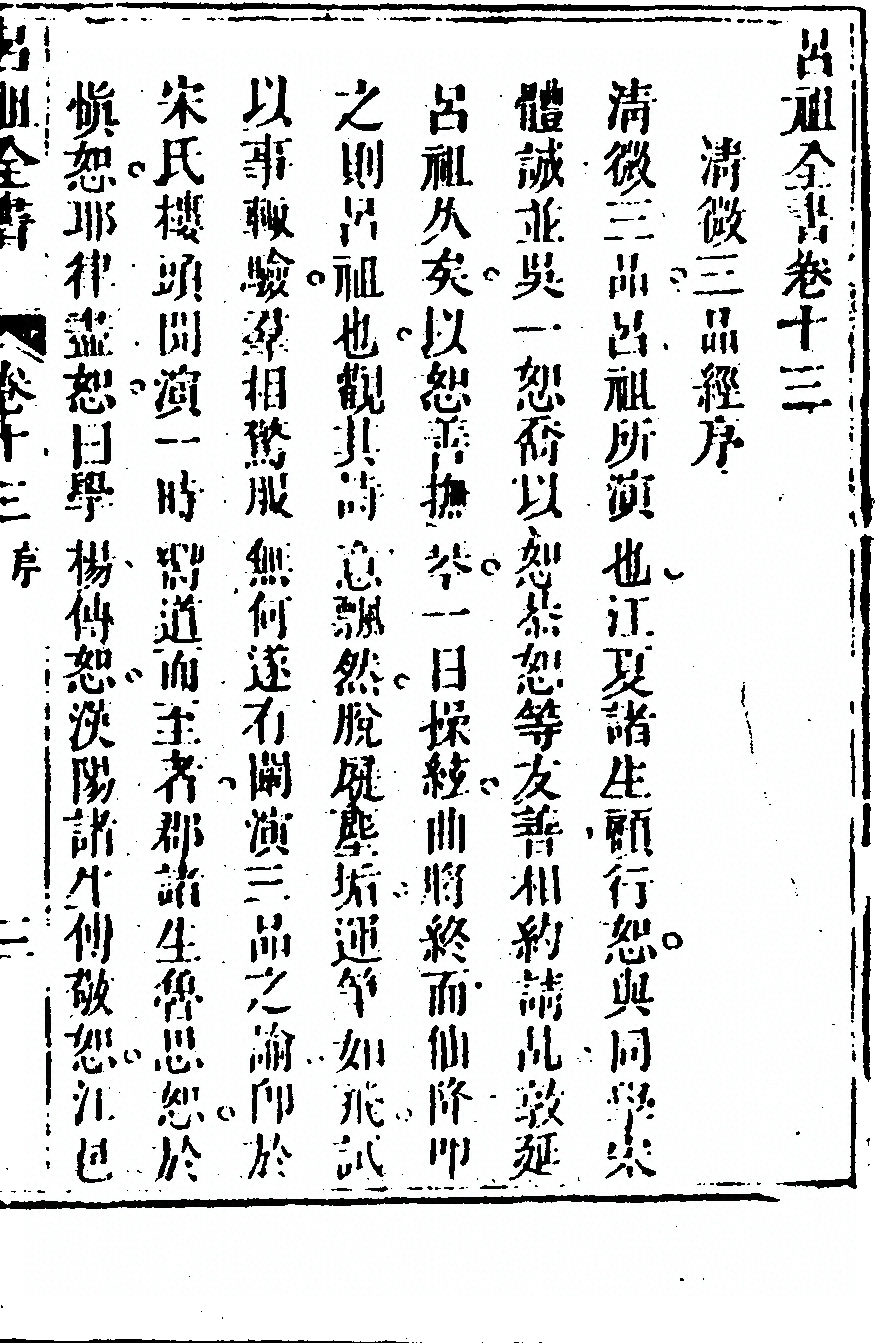 呂祖全書卷十三
清微三品經序
清微三品呂祖所演也江夏諸生顧行恕與同學宋
體誠並吳一恕喬以恕恭恕等友善相約請乩敦延
呂祖久矣以恕善撫琴一日操絃曲將終而仙降叩
之則呂祖也觀其詩意飄然脫屣塵垢運筆如飛試
以事輒驗羣相驚服無何遂有闡演三品之諭卽於
宋氏樓頭開演一時慕道而至者郡諸生魯思恕於
愼恕耶律盡恕日學楊傳恕漢陽諸生傅敬恕江邑
呂祖全書 卷十三 序 一